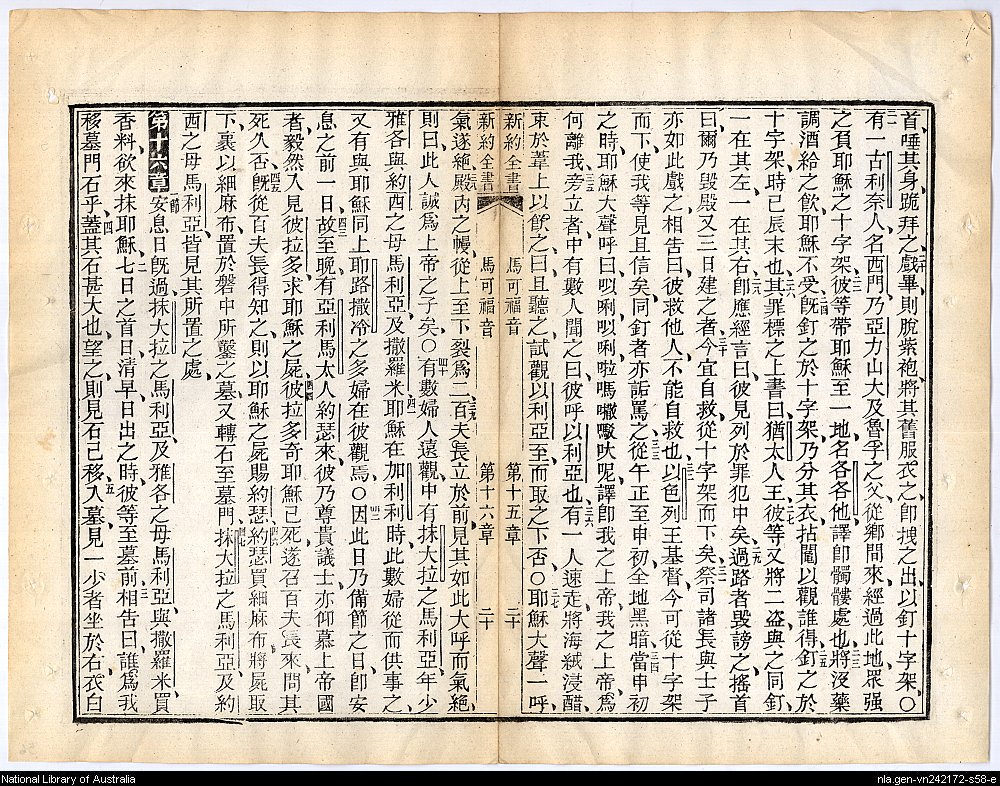 首唾其身跪拜之戲畢則脫紫袍將其舊服衣之卽拽之出以釘十字架〇
二一有一古利奈人名西門乃亞力山大及魯孚之父從鄉間來經過此地眾强
之負耶穌之十字架彼等帶耶穌至一地名各各他譯卽髑髏處也將沒藥
調酒給之飲耶穌不受既釘之於十字架乃分其衣拈鬮以觀誰得釘之於
十字架時已辰末也其罪標之上書曰猶太人王彼等又將二盗與之同釘
一在其左一在其右卽應經言曰彼見列於罪犯中矣過路者毀謗之搖首
曰爾乃毀殿又三日建之者今宜自救從十字架而下矣祭司諸長與士子
亦如此戲之相告曰彼救他人不能自救也以色列王基督今可從十字架
而下使我等見且信矣同釘者亦詬罵之從午正至申初全地黑暗當申初
之時耶穌大聲呼曰以唎以唎啦嗎撒嘅呔呢譯卽我之上帝我之上帝爲
何離我旁立者中有數人聞之曰彼呼以利亞也有一人速走將海絨浸醋
束於葦上以飲之曰且聽之試觀以利亞至而取之下否〇耶穌大聲一呼
新約全書 馬可福音 第十五章 二十
新約全書 馬可福音 第十六章 二十
氣遂絕殿內之幔從上至下裂爲二百夫長立於前見其如此大呼而氣絕
則曰此人誠爲上帝之子矣〇有數婦人遠觀中有抹大拉之馬利亞年少
雅各與約西之母馬利亞及撒羅米耶穌在加利利時此數婦從而供事之
又有與耶穌同上耶路撒冷之多婦在彼觀焉〇因此日乃備節之日卽安
息之前一日故至晚有亞利馬太人約瑟來彼乃尊貴議士亦仰慕上帝國
者毅然入見彼拉多求耶穌之屍彼拉多奇耶穌已死遂召百夫長來問其
死久否既從百夫長得知之則以耶穌之屍賜約瑟約瑟買細麻布將屍取
下裹以細麻布置於磐中所鑿之墓又轉石至墓門抹大拉之馬利亞及約
西之母馬利亞皆見其所置之處
第十六章 一節安息日既過抹大拉之馬利亞及雅各之母馬利亞與撒羅米買
香料欲來抹耶穌七日之首日清早日出之時彼等至墓前相告曰誰爲我
移墓門石乎蓋其石甚大也望之則見石已移入墓見一少者坐於右衣白